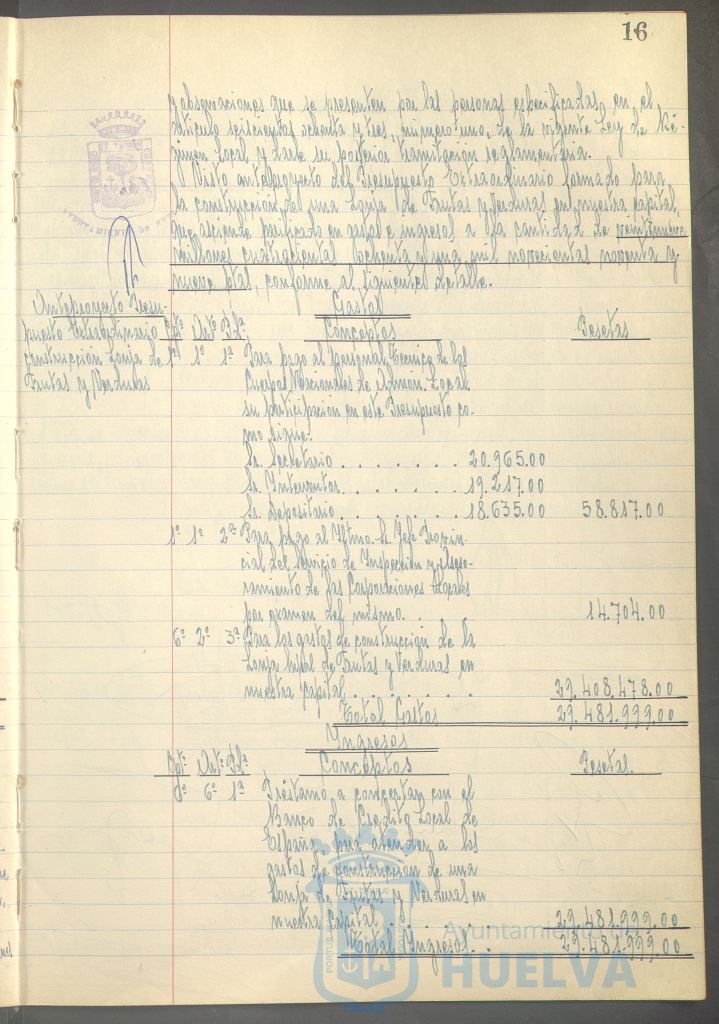 16
y observaciones que se presenten por las personas especificadas en el
artículo seiscientos ochenta y tres, número uno, de la vigente Ley de Ré-
gimen Local, y darle su posterior tramitación reglamentaria.
Visto anteproyecto del Presupuesto Extraordinario formado para
la construcción del una Lonja de Frutas y Verduras en nuestra capital,
que asciende purificado en gastos e ingresos a la cantidad de veintinueve
millones cuatrocientas ochenta y una mil novecientas noventa y
nueve ptas, conforme al siguiente detalle.
Anteproyecto Presu-
puesto Extraordinario
construcción Lonja de
Frutas y Verduras
Gastos
Cptº Artº Pdª Conceptos Pesetas
1º 1º 1ª Para pago al personal Técnico de los
Cuerpos Nacionales de Admón. Local
su participación en este Presupuesto co-
mo sigue:
Sr. Secretario . . . . . . . 20.965.00
Sr. Interventor . . . . . . 19.217.00
Sr. Depositario . . . . . . 18.635.00 58.817.00
1º 1º 2ª Para pago al Iltmo. Sr. Jefe Provin-
cial del Servicio de Inspección y Aseso-
ramiento de las Corporaciones Locales
por examen del mismo. . 14.704.00
6º 2º 3ª Para los gastos de construcción de la
Lonja mpal de Frutas y Verduras en
nuestra Capital . . . . . . . . 29.408.478.00
Total Gastos 29.481.999.00
Ingresos
Cptº Artº Pdª Conceptos Pesetas.
6º 1ª Préstamo a concertar con el
Banco de Crédito Local de
España, para atender a los
gastos de construcción de una
Lonja de Frutas y Verduras en
nuestra Capital . . . . 29.481.999.00
Total Ingresos . . 29.481.999.00
Ayuntamiento de
HUELVA